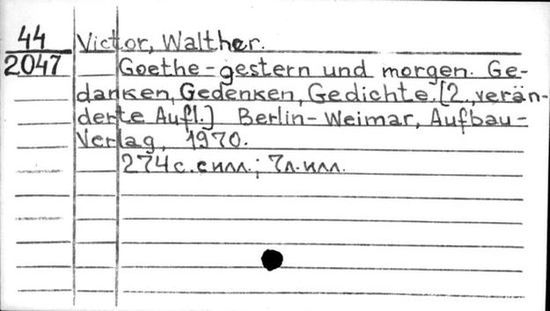 44 Victor, Walther.
2047 Goethe-gestern und morgen. Ge-
danken, Gedenken, Gedichte. [2., verän-
derte Aufl.] Berlin-Weimar, Aufbau-
Verlag, 1970.
274 с. с илл.; 7 л. илл.